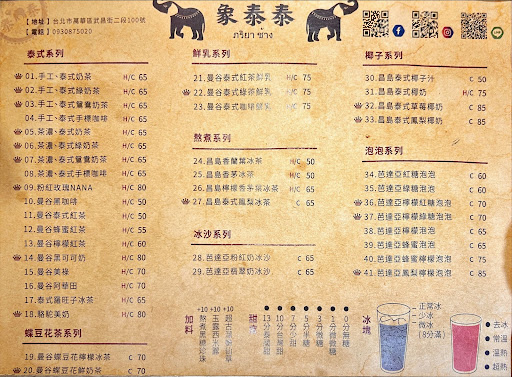 【地址】台北市萬華區武昌街二段100號
【電話】0930875020
象泰泰
ภริยา ช้าง
LINE
泰式系列
01.手工、泰式奶茶 H/C 65
02.手工、泰式綠奶茶 H/C 65
03.手工、泰式鴛鴦奶茶 H/C 65
04.手工、泰式手標咖啡 H/C 65
05.茶濃、泰式奶茶 H/C 65
06.茶濃、泰式綠奶茶 H/C 65
07.茶濃、泰式鴛鴦奶茶 H/C 65
08.茶濃、泰式手標咖啡 H/C 65
09.粉紅玫瑰NANA H/C 80
10.曼谷黑咖啡 H/C 50
11.曼谷泰式紅茶 H/C 50
12.曼谷蜂蜜紅茶 H/C 55
13.曼谷檸檬紅茶 H/C 60
14.曼谷黑可可奶 H/C 80
15.曼谷美祿 H/C 70
16.曼谷阿華田 H/C 70
17.泰式羅旺子冰茶 C 65
18.駱駝美奶 H/C 70
蝶豆花茶系列
19.曼谷蝶豆花檸檬冰茶 C 70
20.曼谷蝶豆花鮮奶茶 C 70
鮮乳系列
21.曼谷泰式紅茶鮮乳 H/C 75
22.曼谷泰式綠茶鮮乳 H/C 75
23.曼谷泰式咖啡鮮乳 H/C 75
熬煮系列
24.昌島香蘭葉冰茶 H/C 50
25.昌島香茅冰茶 H/C 50
26.昌島檸檬香茅葉冰茶 H/C 65
27.昌島泰式鳳梨冰茶 C 65
冰沙系列
28.芭達亞粉紅奶冰沙 C 65
29.芭達亞翡翠奶冰沙 C 65
椰子系列
30.昌島泰式椰子汁 C 50
31.昌島泰式椰奶 H/C 75
32.昌島泰式草莓椰奶 C 85
33.昌島泰式鳳梨椰奶 C 85
泡泡系列
34.芭達亞紅糖泡泡 C 60
35.芭達亞綠糖泡泡 C 60
36.芭達亞檸檬紅糖泡泡 C 70
37.芭達亞檸檬綠糖泡泡 C 70
38.芭達亞蜂蜜泡泡 C 65
39.芭達亞檸檬泡泡 C 65
40.芭達亞蜂蜜檸檬泡泡 C 75
41.芭達亞鳳梨檸檬泡泡 C 85
加料
+10 熬煮黑糖珍珠
+10 玉露西米露
+10
甜度
冰塊
正常冰
少冰
微冰
(8分滿)
去冰
常溫
溫熱
超熱